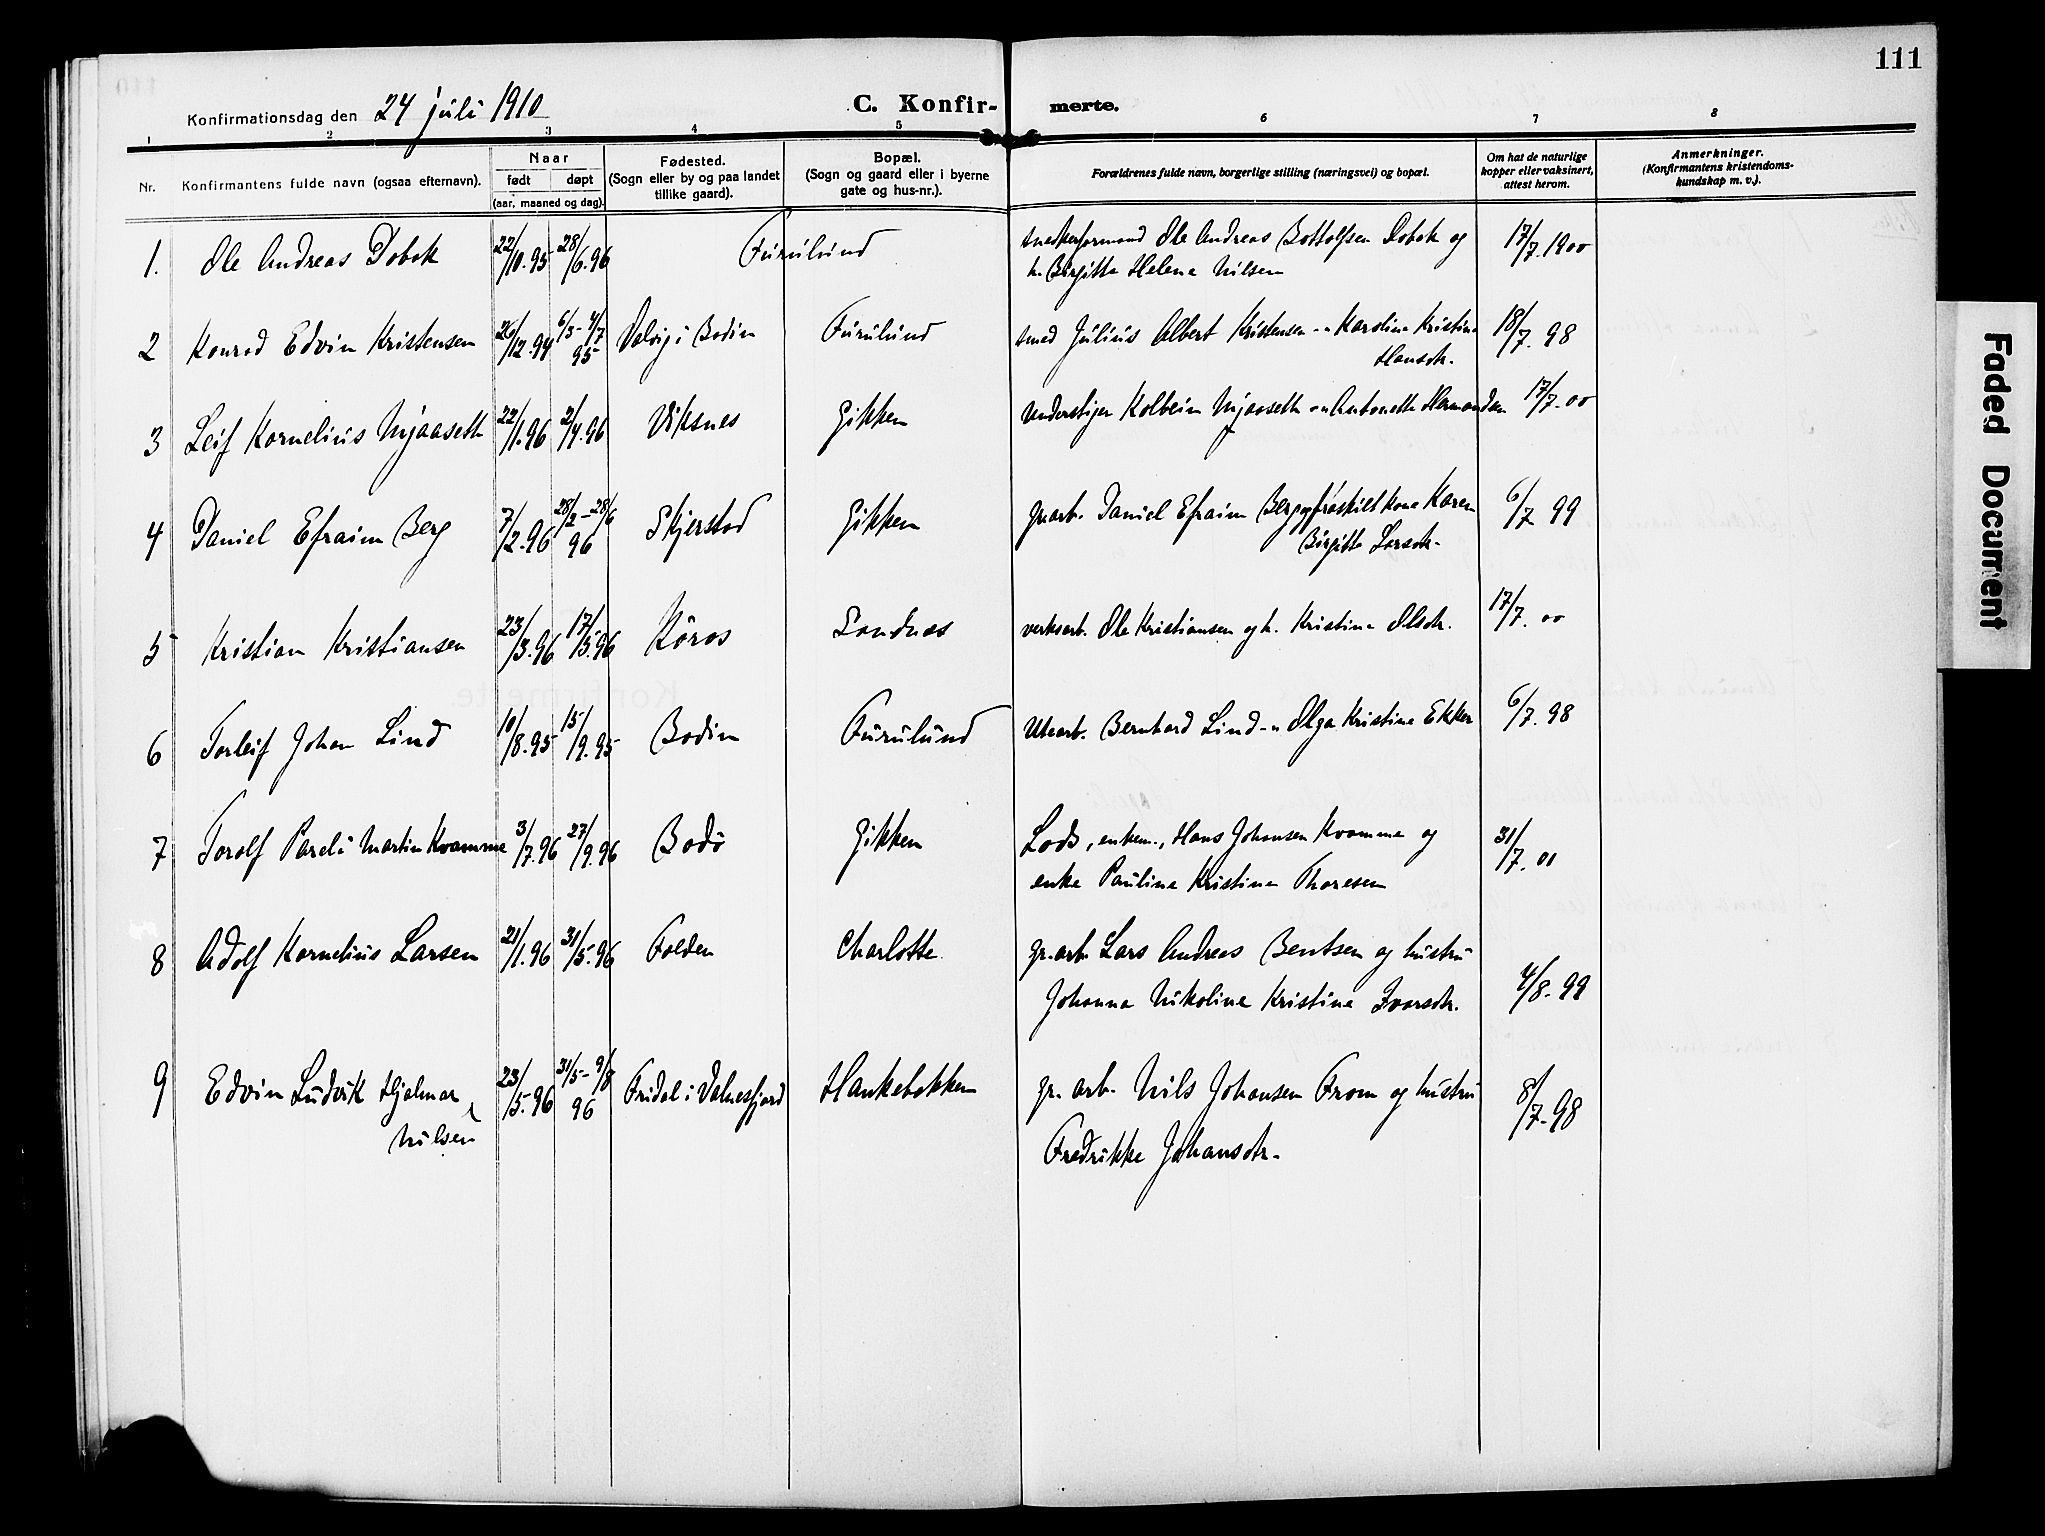 111
Konfirmationsdag den 24 juli 1910
C. Konfir- merte.
1 2 3 4 5 6 7 8
Nr. Konfirmantens fulde navn (ogsaa efternavn).
Naar
født døpt
(aar, maaned og dag).
Fødested.
(Sogn eller by og paa landet
tillike gaard).
Bopæl.
(Sogn og gaard eller i byerne
gate og hus-nr.).
Forældrenes fulde navn, borgerlige stilling (næringsvei) og bopæl.
Om hat de naturlige
kopper eller vaksinert,
attest herom.
Anmerkninger.
(Konfirmantens kristendoms-
kundskap m. v.).
1. Ole Andreas Dobak 22/10.95 28/6.96 Furulund snekkerformand Ole Andreas Bottolfsen Dobak og 17/7.1900
h. Birgitte Helena Nilsen
2 Konrad Edvin Kristensen 26/12.94 6/3-4/7 95 Valvig i Bodin Furulund smed Julius Albert Kristensen -"- Karoline Kristine 18/7.98
Hansdtr.
3 Leif Kornelius Mjaaseth 22/1.96 2/4.96 Viksnes Gikken Understiger Kolbein Mjaaseth -"- Antonette Hermandsen 17/7.00
4 Daniel Efraim Berg 7/2.96 28/2-28/6 96 Skjerstad Gikken gr.arb. Daniel Efraim Berg og fraskilt kone Karen 6/7 99
Birgitte Larsdtr.
5 Kristian Kristiansen 23/3.96 17/5.96 Røros Sandnes verksarb. Ole Kristiansen og h. Kristine Olsdtr. 17/7.00
6 Torleif Johan Lind 10/8.95 15/9.95 Bodin Furulund Utearb. Bernhard Lind -"- Olga Kristine Ekker 6/7.98
7 Torolf Pareli Martin Kvamme 3/7.96 27/9.96 Bodø Gikken Lods, enkem., Hans Johansen Kvamme og 31/7.01
enke Pauline Kristine Thoresen
8 Adolf Kornelius Larsen 21/1.96 31/5.96 Folden Charlotte gr.arb. Lars Andreas Bentsen og hustru
Johanna Nikoline Kristine Ivarsdtr. 4/8.99
9 Edvin Ludvik Hjalmar 23/5.96 31/5-9/8 96 Fridal i Valnesfjord Hankabakken gr. arb. Nils Johansen From og hustru 8/7.98
Nilsen
Fredrikke Johansdtr.
Faded Document